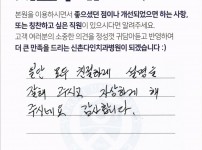 본원을 이용하시면서 좋으셨던 점이나 개선되었으면 하는 사항,
또는 칭찬하고 싶은 직원이 있으시다면 알려주세요.
고객 여러분의 소중한 의견을 정성껏 귀담아듣고 반영하여
더 큰 만족을 드리는 신촌다인치과병원이 되겠습니다 :)
모두 친절하게 설명을
잘해 주시고 자상하게 해
주시네요 감사합니다.